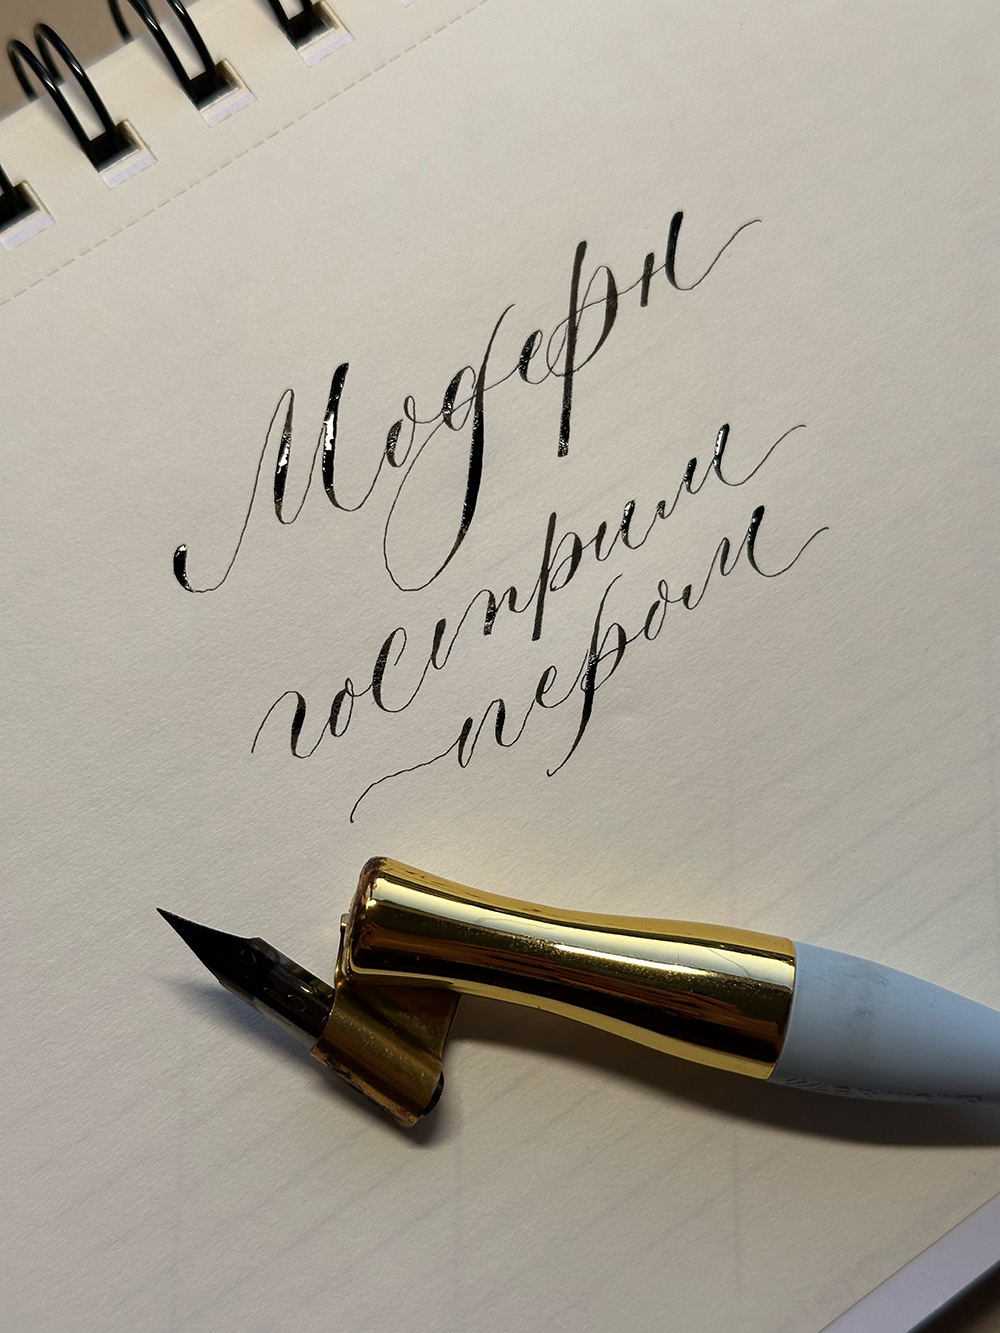 Модерн
гострим
пером